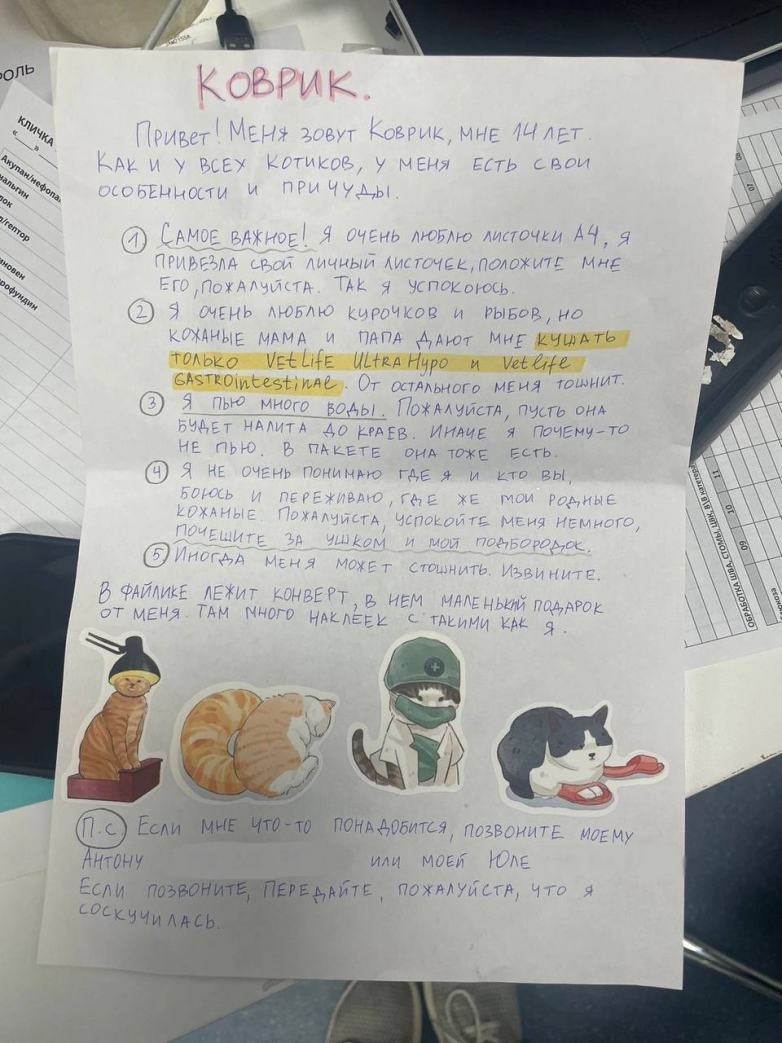 КОВРИК.
Привет! Меня зовут Коврик, мне 14 лет.
Как и у всех котиков, у меня есть свои
особенности и причуды.
① Самое важное! Я очень люблю листочки А4, я
привезла свой личный листочек, положите мне
его, пожалуйста. Так я успокоюсь.
② Я очень люблю курочков и рыбов, но
кожаные мама и папа дают мне кушать
только VetLife UltraHypo и Vetlife
GASTROintestinal. От остального меня тошнит.
③ Я пью много воды. Пожалуйста, пусть она
будет налита до краев. Иначе я почему-то
не пью. В пакете она тоже есть.
④ Я не очень понимаю где я и кто вы,
боюсь и переживаю, где же мои родные
кожаные. Пожалуйста, успокойте меня немного,
почешите за ушком и мой подбородок.
⑤ Иногда меня может стошнить. Извините.
В файлике лежит конверт, в нем маленький подарок
от меня. Там много наклеек с такими как я.
П.С. Если мне что-то понадобится, позвоните моему
Антону или моей Юле
Если позвоните, передайте, пожалуйста, что я
соскучилась.
КЛИЧКА
ОБРАБОТКА ШВА, СТОМЫ, ЦВК, В\В катетера
09
10
11
07